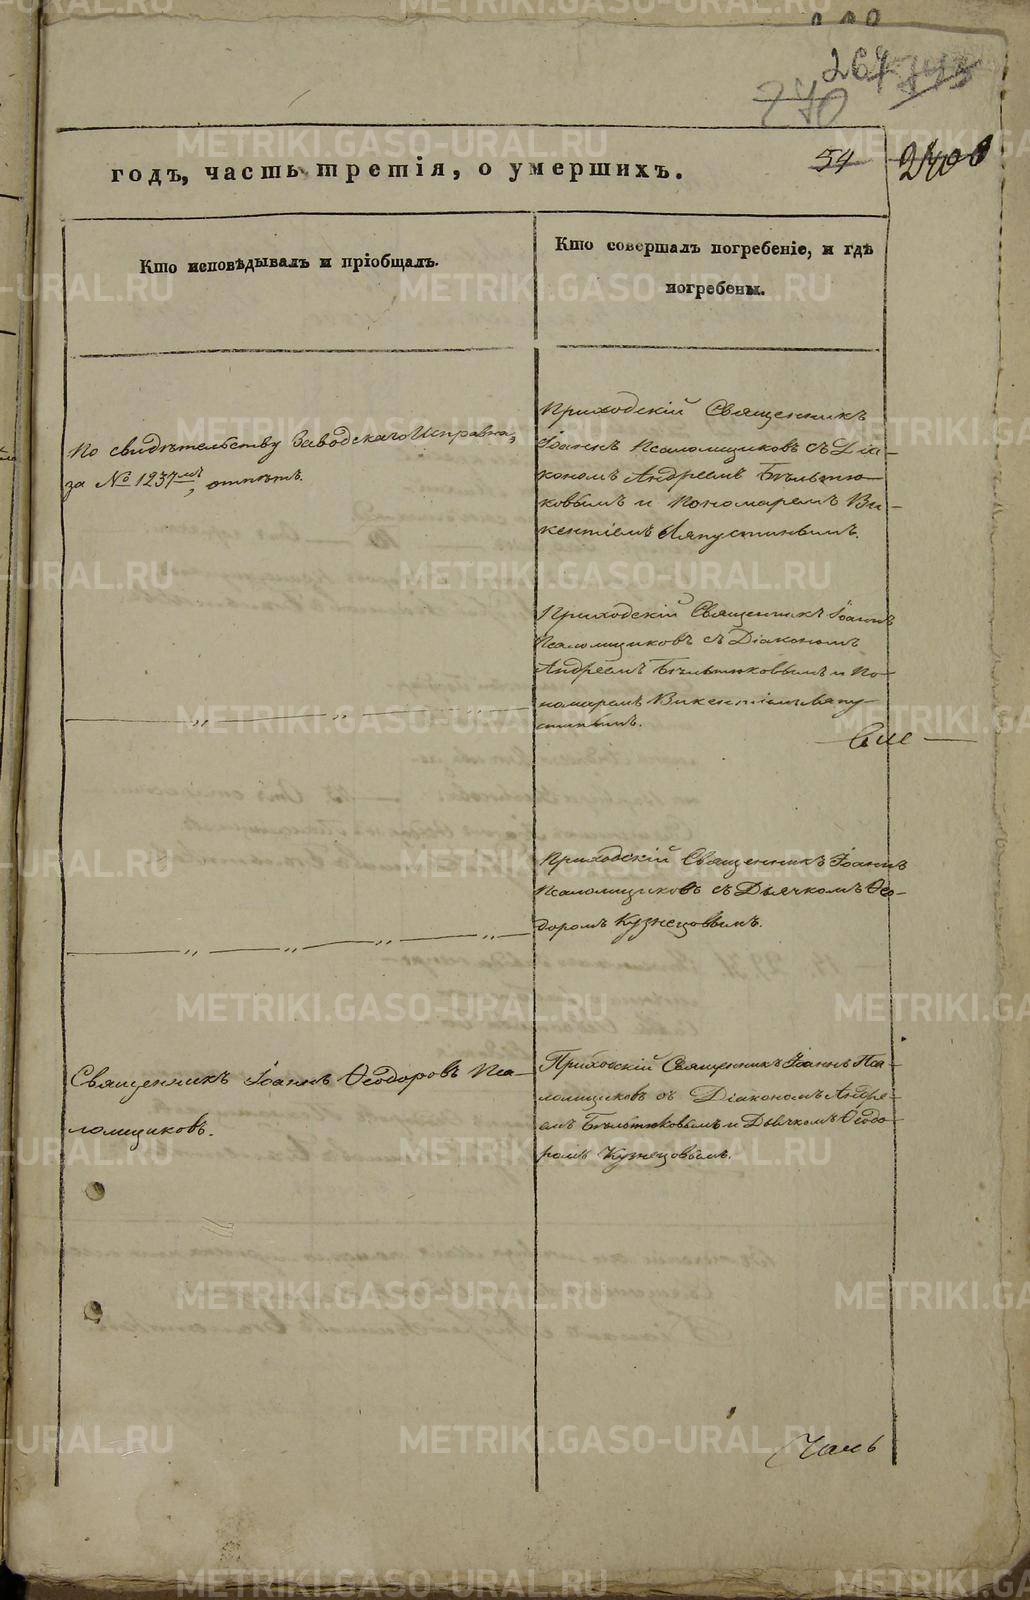 267
270
годъ, часть третія, о умершихъ.
54
Кто исповѣдывалъ и пріобщалъ.
Кто совершалъ погребеніе, и гдѣ
погребены.
По свидѣтельству Заводскаго Исправна,
за № 1237мъ, отпѣтъ.
Приходскій Священникъ
Іоаннъ Псаломщиковъ съ Діа-
кономъ Андреемъ Бѣльтю-
ковымъ и Пономаремъ Ви-
кентіемъ Ляпустинымъ.
Приходскій Священникъ Іоаннъ
Псаломщиковъ съ Діакономъ
Андреемъ Бѣльтюковымъ и По-
номаремъ Викентіемъ Ляпу-
стинымъ.
„ „ „
Приходскій Священникъ Іоаннъ
Псаломщиковъ съ Дьячкомъ Ѳео-
доромъ Кузнецовымъ.
„ „ „ „
Священникъ Іоаннъ Ѳеодоровъ Пса-
ломщиковъ.
Прихоскій Священникъ Іоаннъ Пса-
ломщиковъ съ Діакономъ Андре-
емъ Бѣльтюковымъ и Дьячкомъ Ѳеодо-
ромъ Кузнецовымъ.
Часть
METRIKI.GASO-URAL.RU